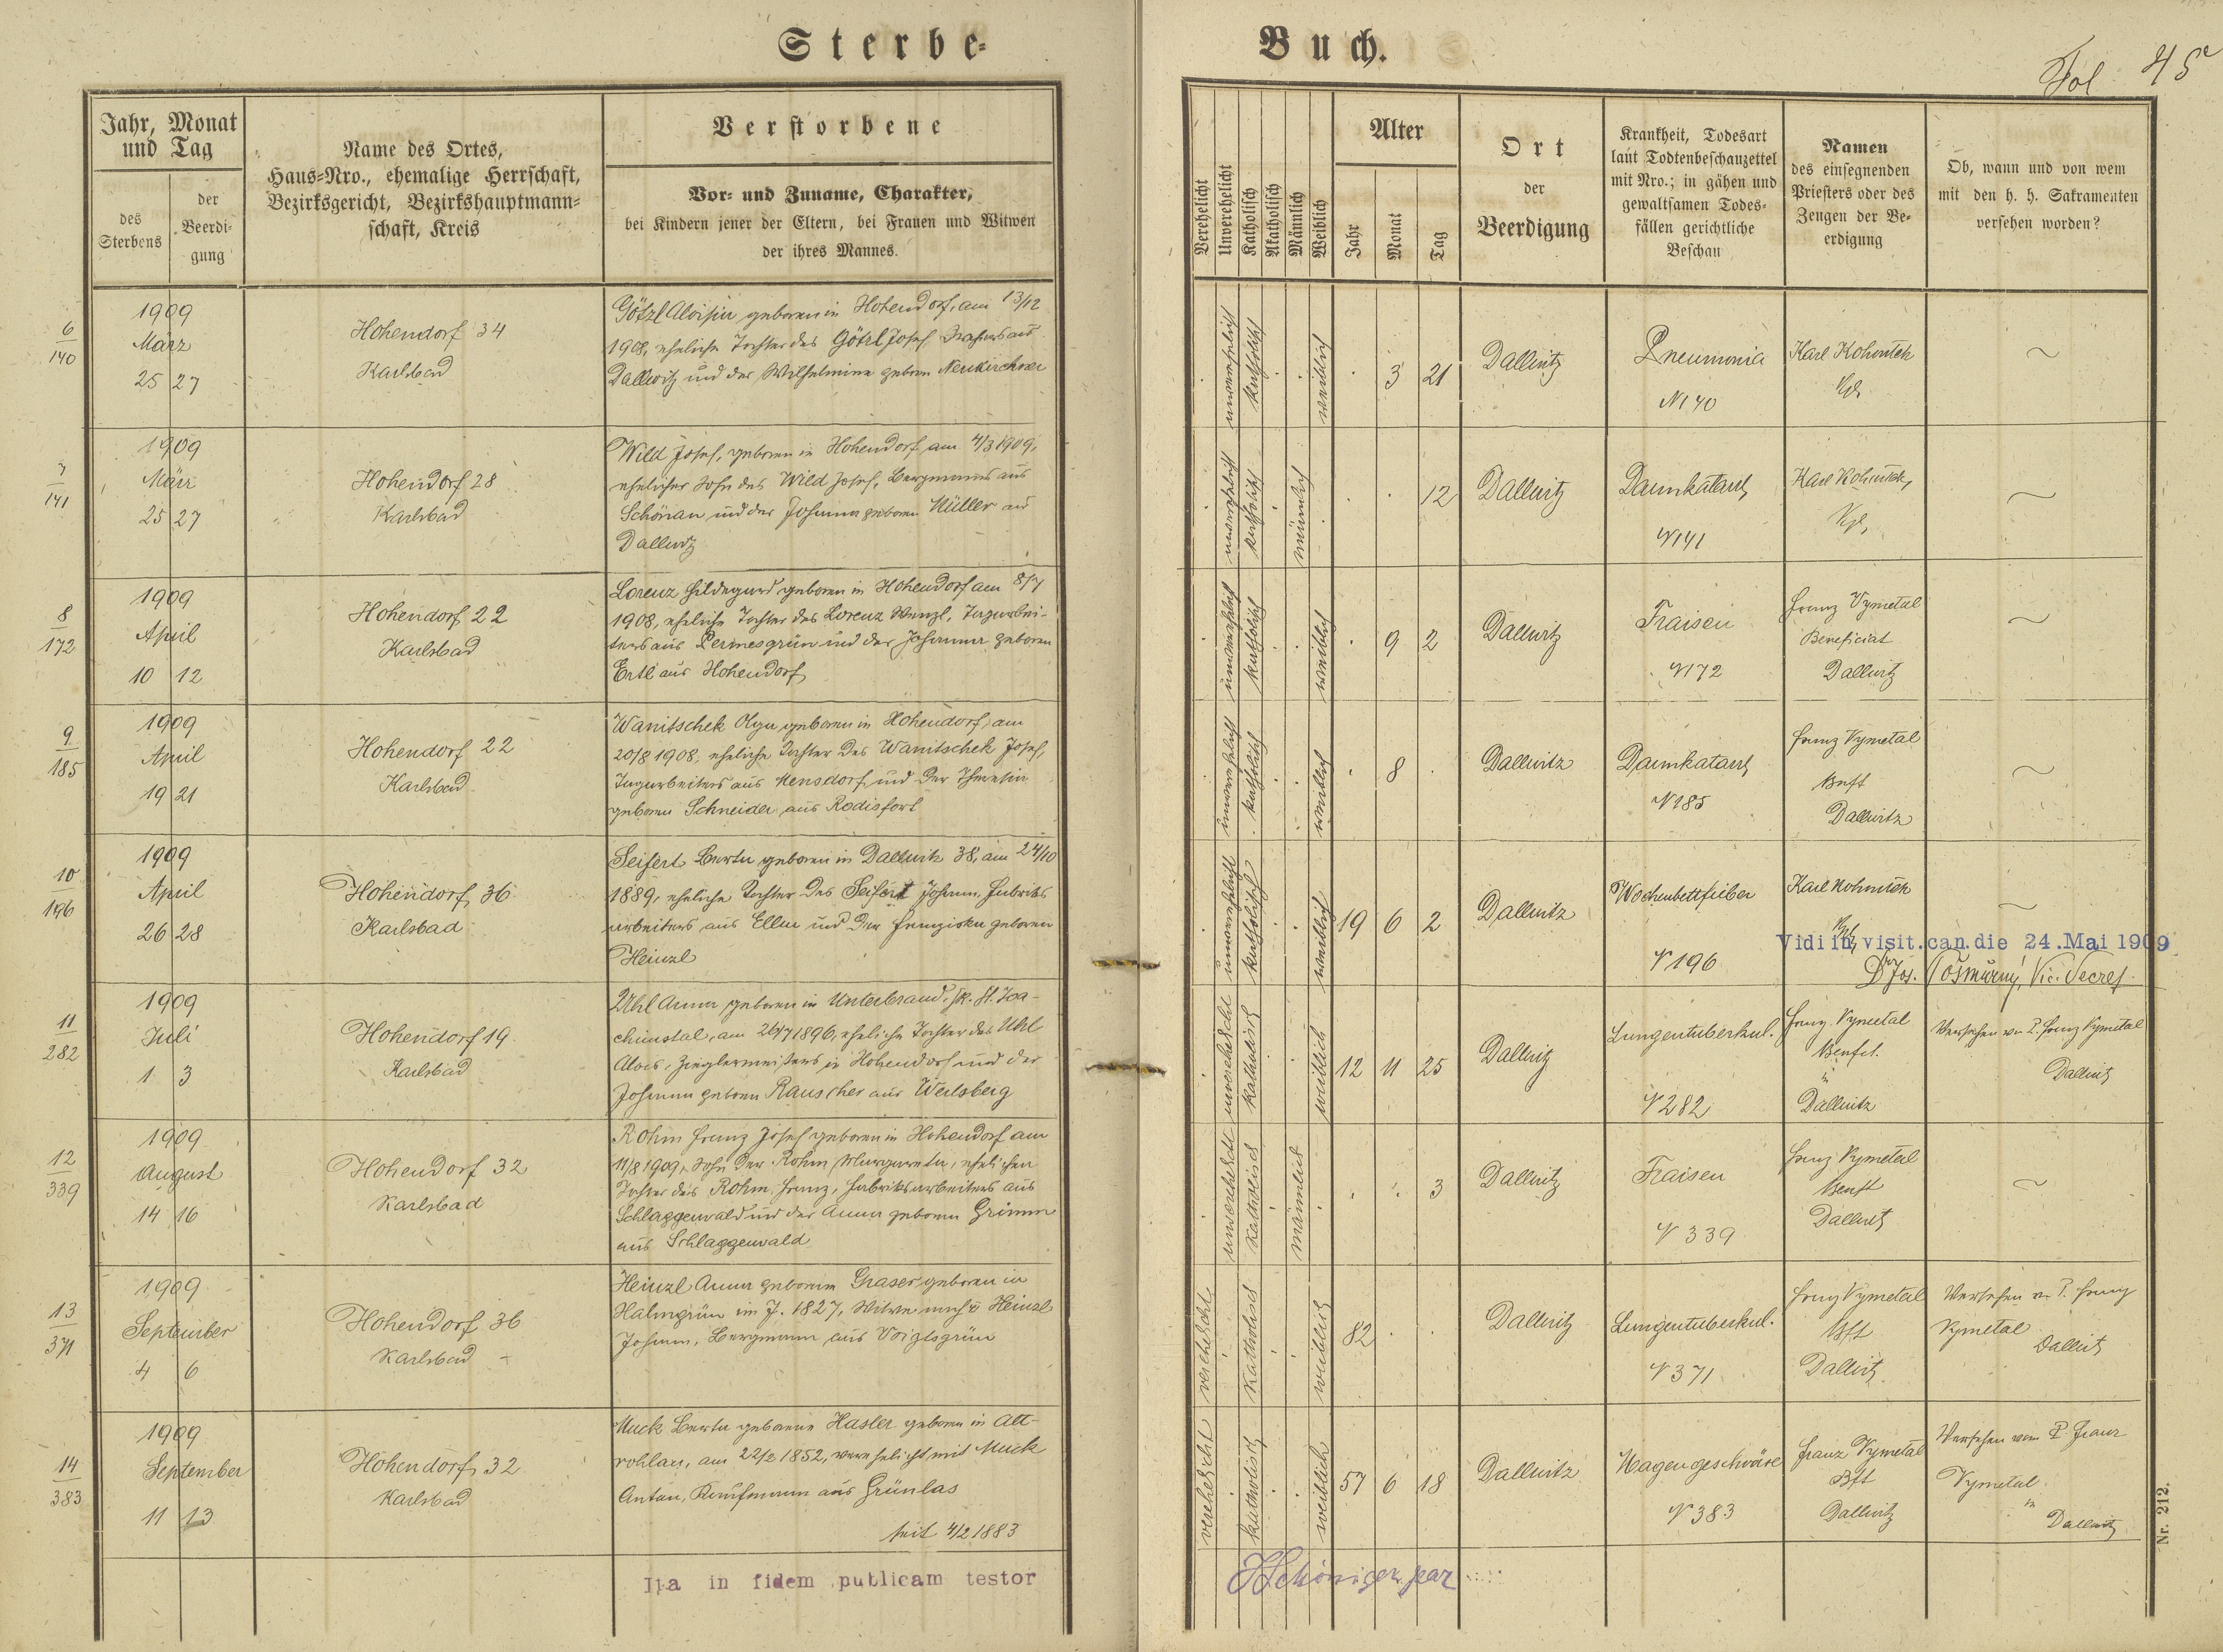 Sterbe-Buch.
Fol 45
Jahr, Monat und Tag
des Sterbens
der Beerdigung
Name des Ortes,
Haus-Nro., ehemalige Herrschaft,
Bezirksgericht, Bezirkshauptmann-
schaft, Kreis
Verstorbene
Vor- und Zuname, Charakter,
bei Kindern jener der Eltern, bei Frauen und Witwen
der ihres Mannes.
Verehelicht
Unverehelicht
Katholisch
Akatholisch
Männlich
Weiblich
Alter
Jahr
Monat
Tag
Ort
der
Beerdigung
Krankheit, Todesart
laut Todtenbeschauzettel
mit Nro.; in gähen und
gewaltsamen Todes-
fällen gerichtliche
Beschau
Namen
des einsegnenden
Priesters oder des
Zeugen der Be-
erdigung
Ob, wann und von wem
mit den h. h. Sakramenten
versehen worden?
6/140
1909
März
25 27
Hohendorf 34
Karlsbad
Götzl Aloisia geboren in Hohendorf, am 13/12
1908, eheliche Tochter des Götzl Josef aus
Dallwitz und der Wilhelmine geboren Neukirchner
unverehelicht
katholisch
weiblich
3 21
Dallwitz
Pneumonia
N 140
Karl Kohoutek
Kpl.
7/141
1909
März
25 27
Hohendorf 28
Karlsbad
Wild Josef, geboren in Hohendorf am 4/3 1909,
ehelicher Sohn des Wild Josef, Bergmanns aus
Schönau und der Johanna geboren Müller aus
Dallwitz
unverehelicht
katholisch
männlich
12
Dallwitz
Darmkatarrh
N 141
Karl Kohoutek,
Kpl.
8/172
1909
April
10 12
Hohendorf 22
Karlsbad
Lorenz Hildegard geboren in Hohendorf am 8/7
1908, eheliche Tochter des Lorenz Wenzl, Tagarbei-
ters aus Permesgrün und der Johanna geboren
Ertl aus Hohendorf
unverehelicht
katholisch
weiblich
9 2
Dallwitz
Fraisen
N 172
Franz Vymetal
Beneficiat
Dallwitz
9/185
1909
April
19 21
Hohendorf 22
Karlsbad
Wanitschek Olga geboren in Hohendorf, am
20/8 1908, eheliche Tochter des Wanitschek Josef,
Tagarbeiters aus Kensdorf und der Theresia
geboren Schneider aus Rodisfort
unverehelicht
katholisch
weiblich
8
Dallwitz
Darmkatarrh
N 185
Franz Vymetal
Bnft
Dallwitz
10/196
1909
April
26 28
Hohendorf 36
Karlsbad
Seifert Berta geboren in Dallwitz 38, am 24/10
1889, eheliche Tochter des Seifert Johann, Fabriks
arbeiters aus Ellm und der Franziska geboren
Heinzl
unverehelicht
katholisch
weiblich
19 6 2
Dallwitz
Wochenbettfieber
N 196
Karl Kohoutek
Kpl.
Vidi in visit. can. die 24. Mai 1909
Dr Jos. Vic. Secret.
11/282
1909
Juli
1 3
Hohendorf 19
Karlsbad
Uhl Anna geboren in Unterbrand, Bk. St. Joa-
chimstal, am 26/7 1896, eheliche Tochter des Uhl
Alois, Zieglermeisters in Hohendorf und der
Johanna geboren Rauscher aus Weilsberg
unverehelicht
katholisch
weiblich
12 11 25
Dallwitz
Lungentuberkul.
N 282
Franz Vymetal
Benfct.
in
Dallwitz
Versehen von P. Franz Vymetal
Dallwitz
12/339
1909
August
14 16
Hohendorf 32
Karlsbad
Rohm Franz Josef geboren in Hohendorf am
11/8 1909, Sohn der Rohm Margareta, ehelichen
Tochter des Rohm Franz, Fabriksarbeiters aus
Schlaggenwald und der Anna geboren Grimm
aus Schlaggenwald
unverehelicht
katholisch
männlich
3
Dallwitz
Fraisen
N 339
Franz Vymetal
Benft
Dallwitz
13/371
1909
September
4 6
Hohendorf 36
Karlsbad
Heinzl Anna geborene Graser geboren in
Halmgrün im J. 1827, Witwe nach Heinzl
Johann, Bergmann aus Voigtsgrün
verehelicht
katholisch
weiblich
82
Dallwitz
Lungentuberkul.
N 371
Franz Vymetal
Bft
Dallwitz
Versehen v. P. Franz
Vymetal
Dallwitz
14/383
1909
September
11 13
Hohendorf 32
Karlsbad
Muck Berta geborene Hasler geboren in Alt-
rohlau, am 22/2 1852, verehelicht mit Muck
Anton, Kaufmann aus Grünlas
seit 4/2 1883
verehelicht
katholisch
weiblich
57 6 18
Dallwitz
Magengeschwüre
N 383
Franz Vymetal
Bft
Dallwitz
Versehen vom P. Franz
Vymetal
in
Dallwitz
Nr. 212.
Ita in fidem publicam testor